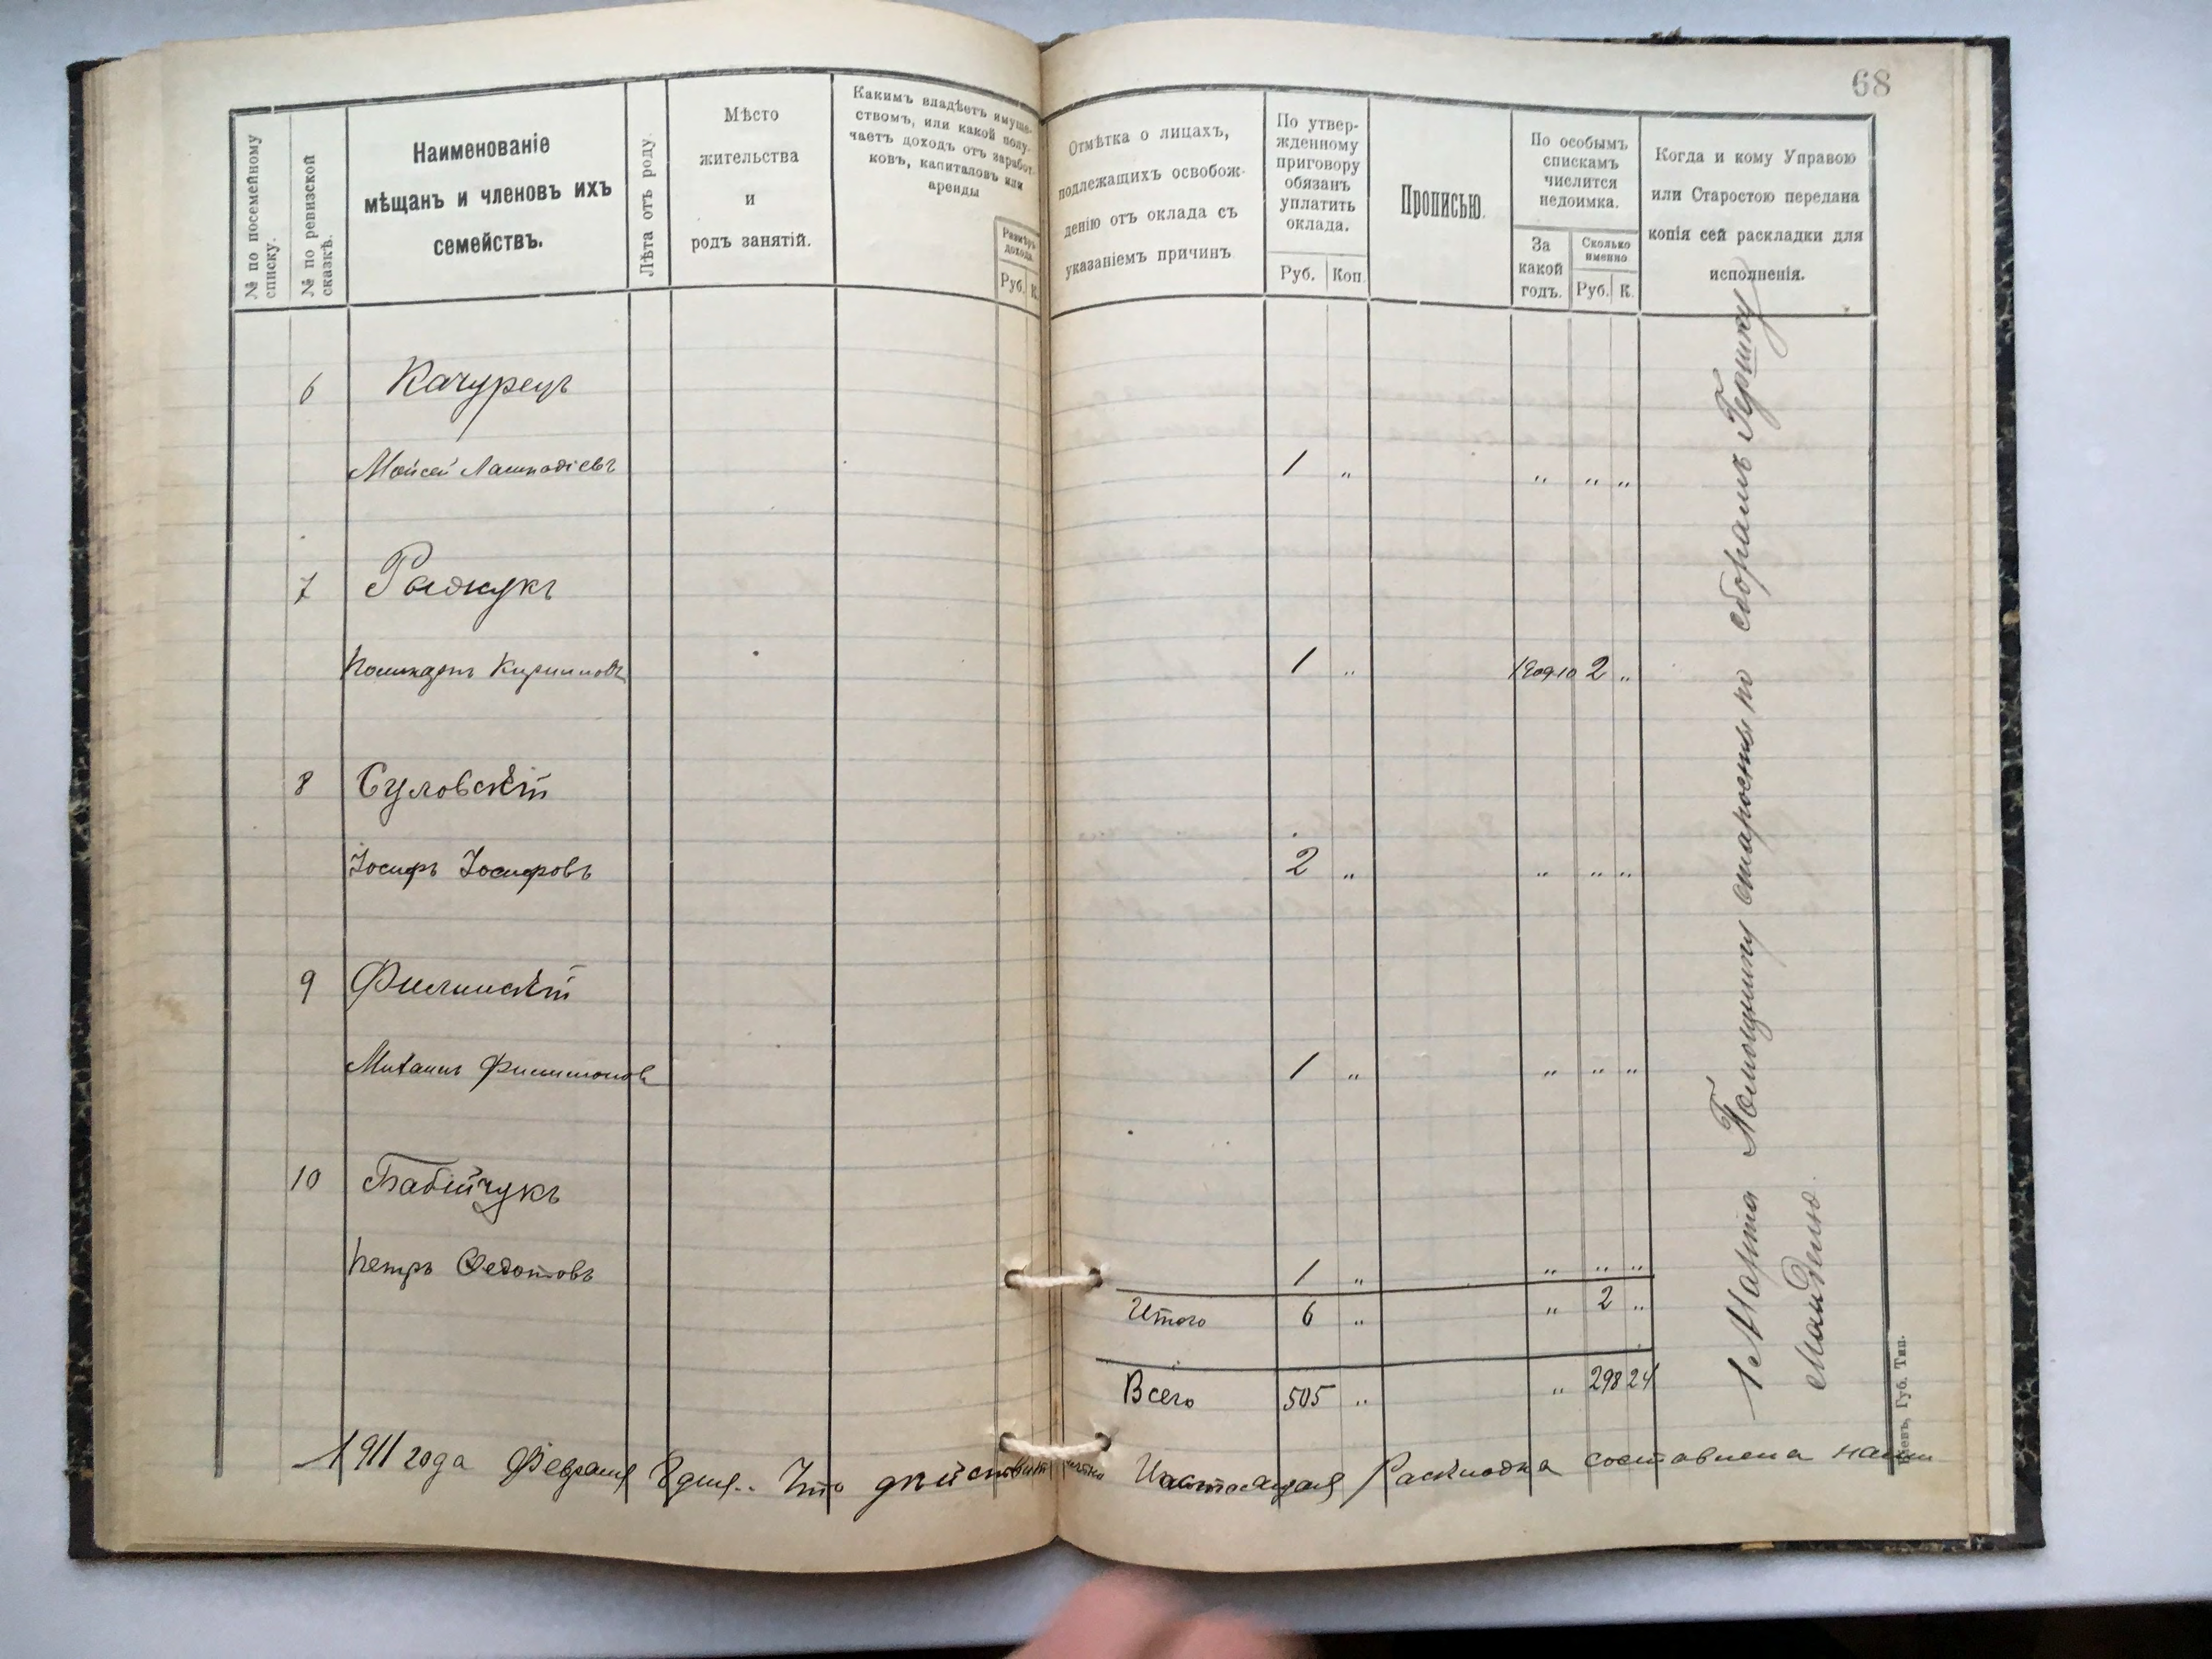 68
№ по посемейному списку.
№ по ревизской сказкѣ.
Наименованіе
мѣщанъ и членовъ ихъ
семействъ.
Лѣта отъ роду.
Мѣсто
жительства
и
родъ занятій.
Какимъ владѣетъ имуще-
ствомъ, или какой полу-
чаетъ доходъ отъ заработ-
ковъ, капиталовъ или
аренды
Размѣръ
дохода.
Руб. К.
Отмѣтка о лицахъ,
подлежащихъ освобож-
денію отъ оклада съ
указаніемъ причинъ
По утвер-
жденному
приговору
обязанъ
уплатить
оклада.
Руб. Коп.
Прописью.
По особымъ
спискамъ
числится
недоимка.
За
какой
годъ.
Сколько
именно
Руб. К.
Когда и кому Управою
или Старостою передана
копія сей раскладки для
исполненія.
6 Качурецъ
Мойсей 1 „ „ „ „
7
Кириловъ 1 „ 190910 2 „
8 Суловскій
Іосифъ Іосифовъ 2 „ „ „ „
9 Филинскій
Михаилъ Филимоновъ 1 „ „ „ „
10 Бабійчукъ
Петръ Федотовъ 1 „ „ „ „
Итого 6 „ „ 2 „
Всего 505 „ „ 298 24
1 Марта Помощнику старосты по сборамъ Гершку
Манделю.
1911 года Февраля 8 дня.. Что дѣйствительно Настоящая Раскладка составлена нами
Кіевъ, Губ. Тип.